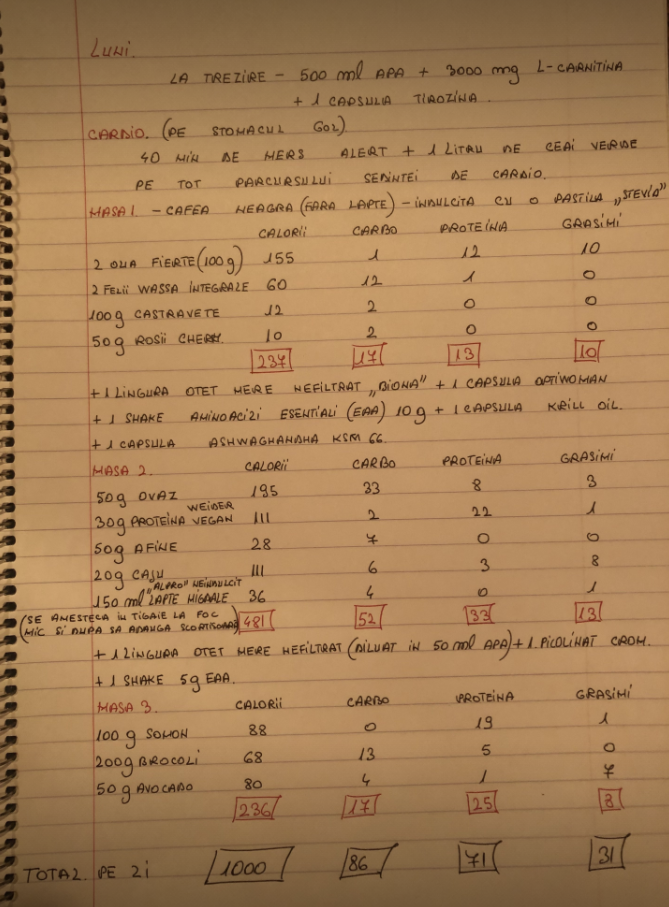 LUNI.
LA TREZIRE – 500 ml APA + 3000 mg L-CARNITINA
+ 1 CAPSULA TIROZINA.
CARDIO. (PE STOMACUL GOL)
40 MIN DE MERS ALERT + 1 LITRU DE CEAI VERDE
PE TOT PARCURSULUI SEDINTEI DE CARDIO.
MASA 1. – CAFEA NEAGRA (FARA LAPTE) – INDULCITA CU O PASTILA „STEVIA”
CALORII CARBO PROTEINA GRASIMI
2 OUA FIERTE (100g) 155 1 12 10
2 FELII WASSA INTEGRALE 60 12 1 0
100g CASTRAVETE 12 2 0 0
50g ROSII CHERRY. 10 2 0 0
237 17 13 10
+ 1 LINGURA OTET MERE NEFILTRAT „BIONA” + 1 CAPSULA OPTIWOMAN
+ 1 SHAKE AMINOACIZI ESENTIALI (EAA) 10 g + 1 CAPSULA KRILL OIL.
+ 1 CAPSULA ASHWAGHANDHA KSM 66.
MASA 2. CALORII CARBO PROTEINA GRASIMI
50g OVAZ 195 33 8 3
30g PROTEINA VEGAN WEIDER 111 2 22 1
50g AFINE 28 7 0 0
20g CAJU 111 6 3 8
150 ml LAPTE MIGDALE "ALPRO" NEINDULCIT 36 4 0 1
(SE AMESTECA IN TIGAIE LA FOC
MIC SI DUPA SA ADAUGA SCORTISOARA) 481 52 33 13
+ 1 LINGURA OTET MERE NEFILTRAT (DILUAT IN 50 ml APA) + 1 PICOLINAT CROM.
+ 1 SHAKE 5g EAA.
MASA 3. CALORII CARBO PROTEINA GRASIMI
100 g SOMON 88 0 19 1
200g BROCOLI 68 13 5 0
50 g AVOCADO 80 4 1 7
236 17 25 8
TOTAL PE ZI 1000 86 71 31